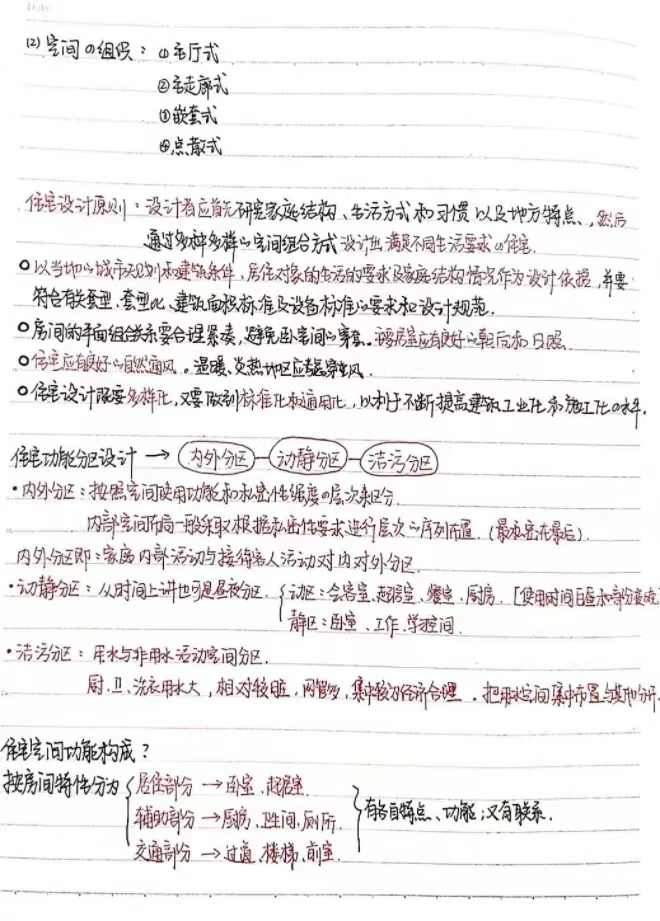 (2) 空间の组织：①毛厅式
②毛走廊式
③嵌套式
④点散式
住宅设计原则：设计者应首先研究家庭结构、生活方式和习惯以及地方特点、然后
通过多种多样的空间组合方式设计出满足不同生活要求の住宅.
○以当地的城市规划和建筑条件,居住对象的生活的要求及家庭结构情况作为设计依据,并要
符合有关套型.套型比、建筑面积标准及设备标准的要求和设计规范.
○房间的平面组合关系要合理紧凑,避免卧室间的穿套.主要居室应有良好的朝向和日照.
○住宅应有良好的自然通风。温暖、炎热地区应有穿堂风.
○住宅设计既要多样化,又要做到标准化和通用化,以利于不断提高建筑工业化和施工化の水平.
住宅功能分区设计 → 内外分区 — 动静分区 — 洁污分区
·内外分区：按照空间使用功能和私密性强度の层次来区分.
内部空间布局一般采取根据私密性要求进行层次的序列布置.（最私密在最后）.
内外分区即：家庭内部活动与接待客人活动对内对外分区.
·动静分区：从时间上讲也可是昼夜分区. { 动区：会客室、起居室、餐室、厨房.[使用时间白昼和部分夜晚]
静区：卧室、工作、学习空间.
·洁污分区：用水与非用水活动空间分区.
厨.卫、洗衣用水大,相对较脏,网管多,集中较为经济合理.把用水空间集中布置与其他分开.
住宅空间功能构成？
按房间特性分为 { 居住部分 → 卧室.起居室.
辅助部分 → 厨房、卫生间、厕所.
交通部分 → 过道、楼梯、前室. } 有各自特点、功能；又有联系.